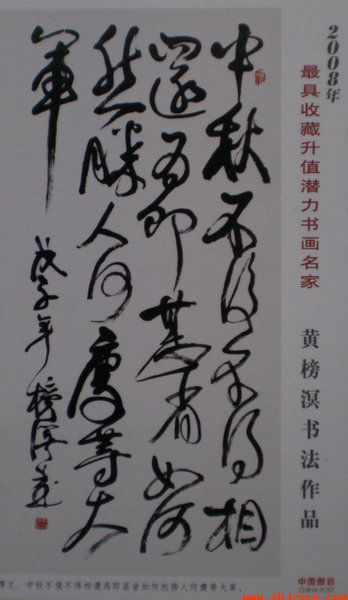 2008年
最具收藏升值潜力书画名家
黄榜溟书法作品
中秋不復不得相
還為即甚省如何
然勝人何慶等大
軍
戊子年榜溟書
釋文：中秋不復不得相還為即甚省如何然勝人何慶等大軍。
中国邮政
CHINA POST